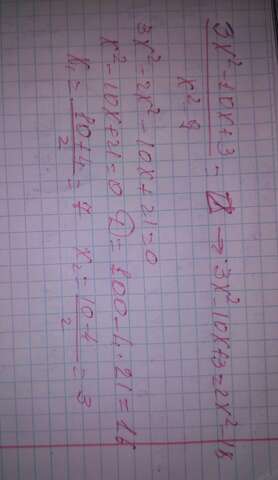 (3x²-10x+3)/(x²-9) = 2 → 3x²-10x+3=2x²-18
3x²-2x²-10x+21=0
x²-10x+21=0 D=100-4·21=16
x₁=(10+4)/2=7 x₂=(10-4)/2=3